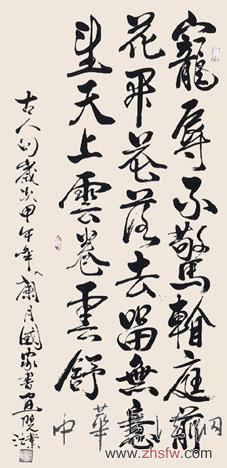 寵辱不驚看庭前
花開花落去留無意
望天上雲卷雲舒
古人句歲次甲午年蘭月國家書画院
中華 网
www.zhsfw.com